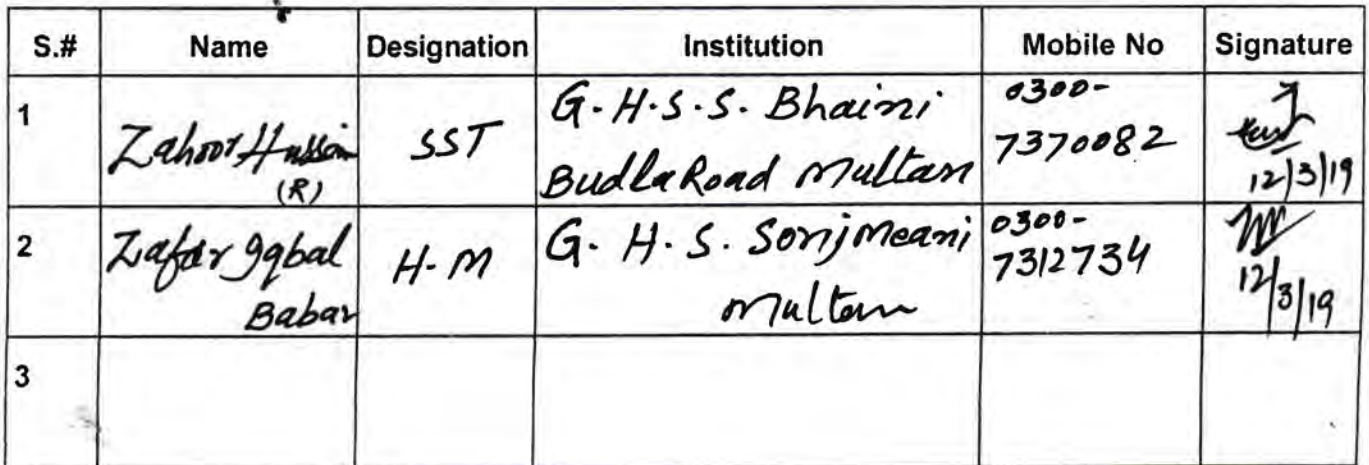 S.# Name Designation Institution Mobile No Signature
1 Zahoor Hussain (R) SST G.H.S.S. Bhaini Budla Road Multan 0300-7370082 12/3/19
2 Zafar Iqbal Babar H.M G.H.S. Multan 0300-7312734 12/3/19
3